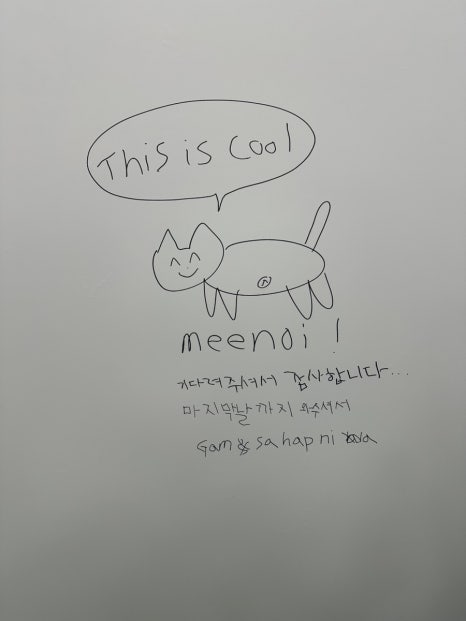 This is cool
meenoi!
기다려주셔서 감사합니다...
마지막날까지 와주셔서
Gam sa hap ni a